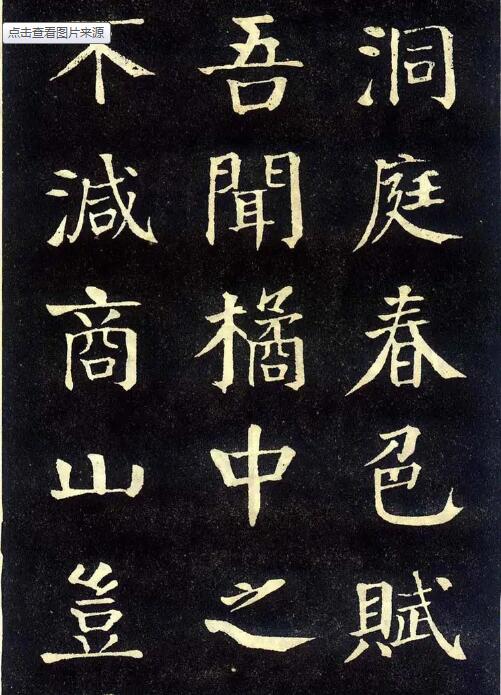 点击查看图片来源
洞庭春色賦
吾聞橘中之
不減商山豈